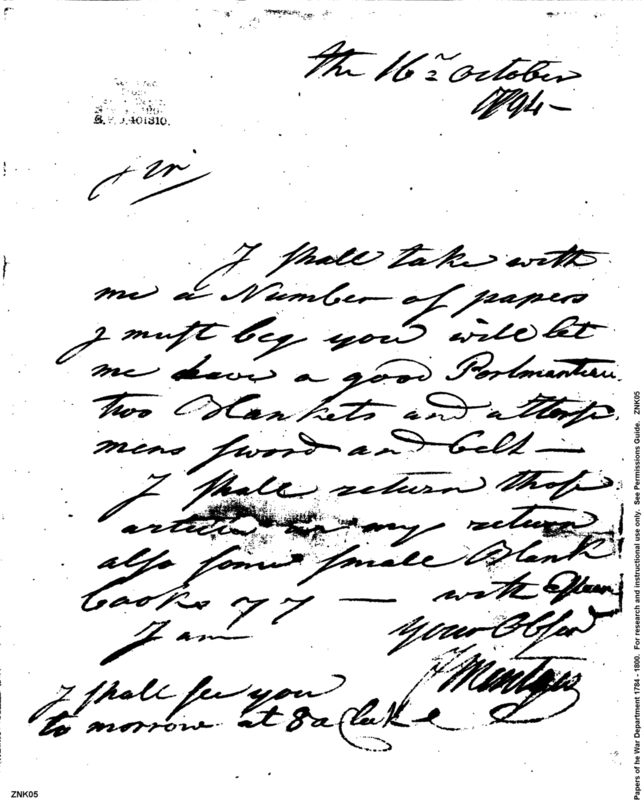 the 16th October
1794 –
Sir
I shall take with
me a Number of papers
I must beg you will let
me have a good Portmanteau
two Blankets and a Horse
mens sword and belt —
I shall return those
articles on my return
also some small Blank
Books 77 — with Esteem
I am your Obser
F Mentges
I shall see you
to morrow at 8 a Clock
B.P.O.401310.
ZNK05
Papers of he War Department 1784 - 1800. For research and instructional use only. See Permissions Guide. ZNK05